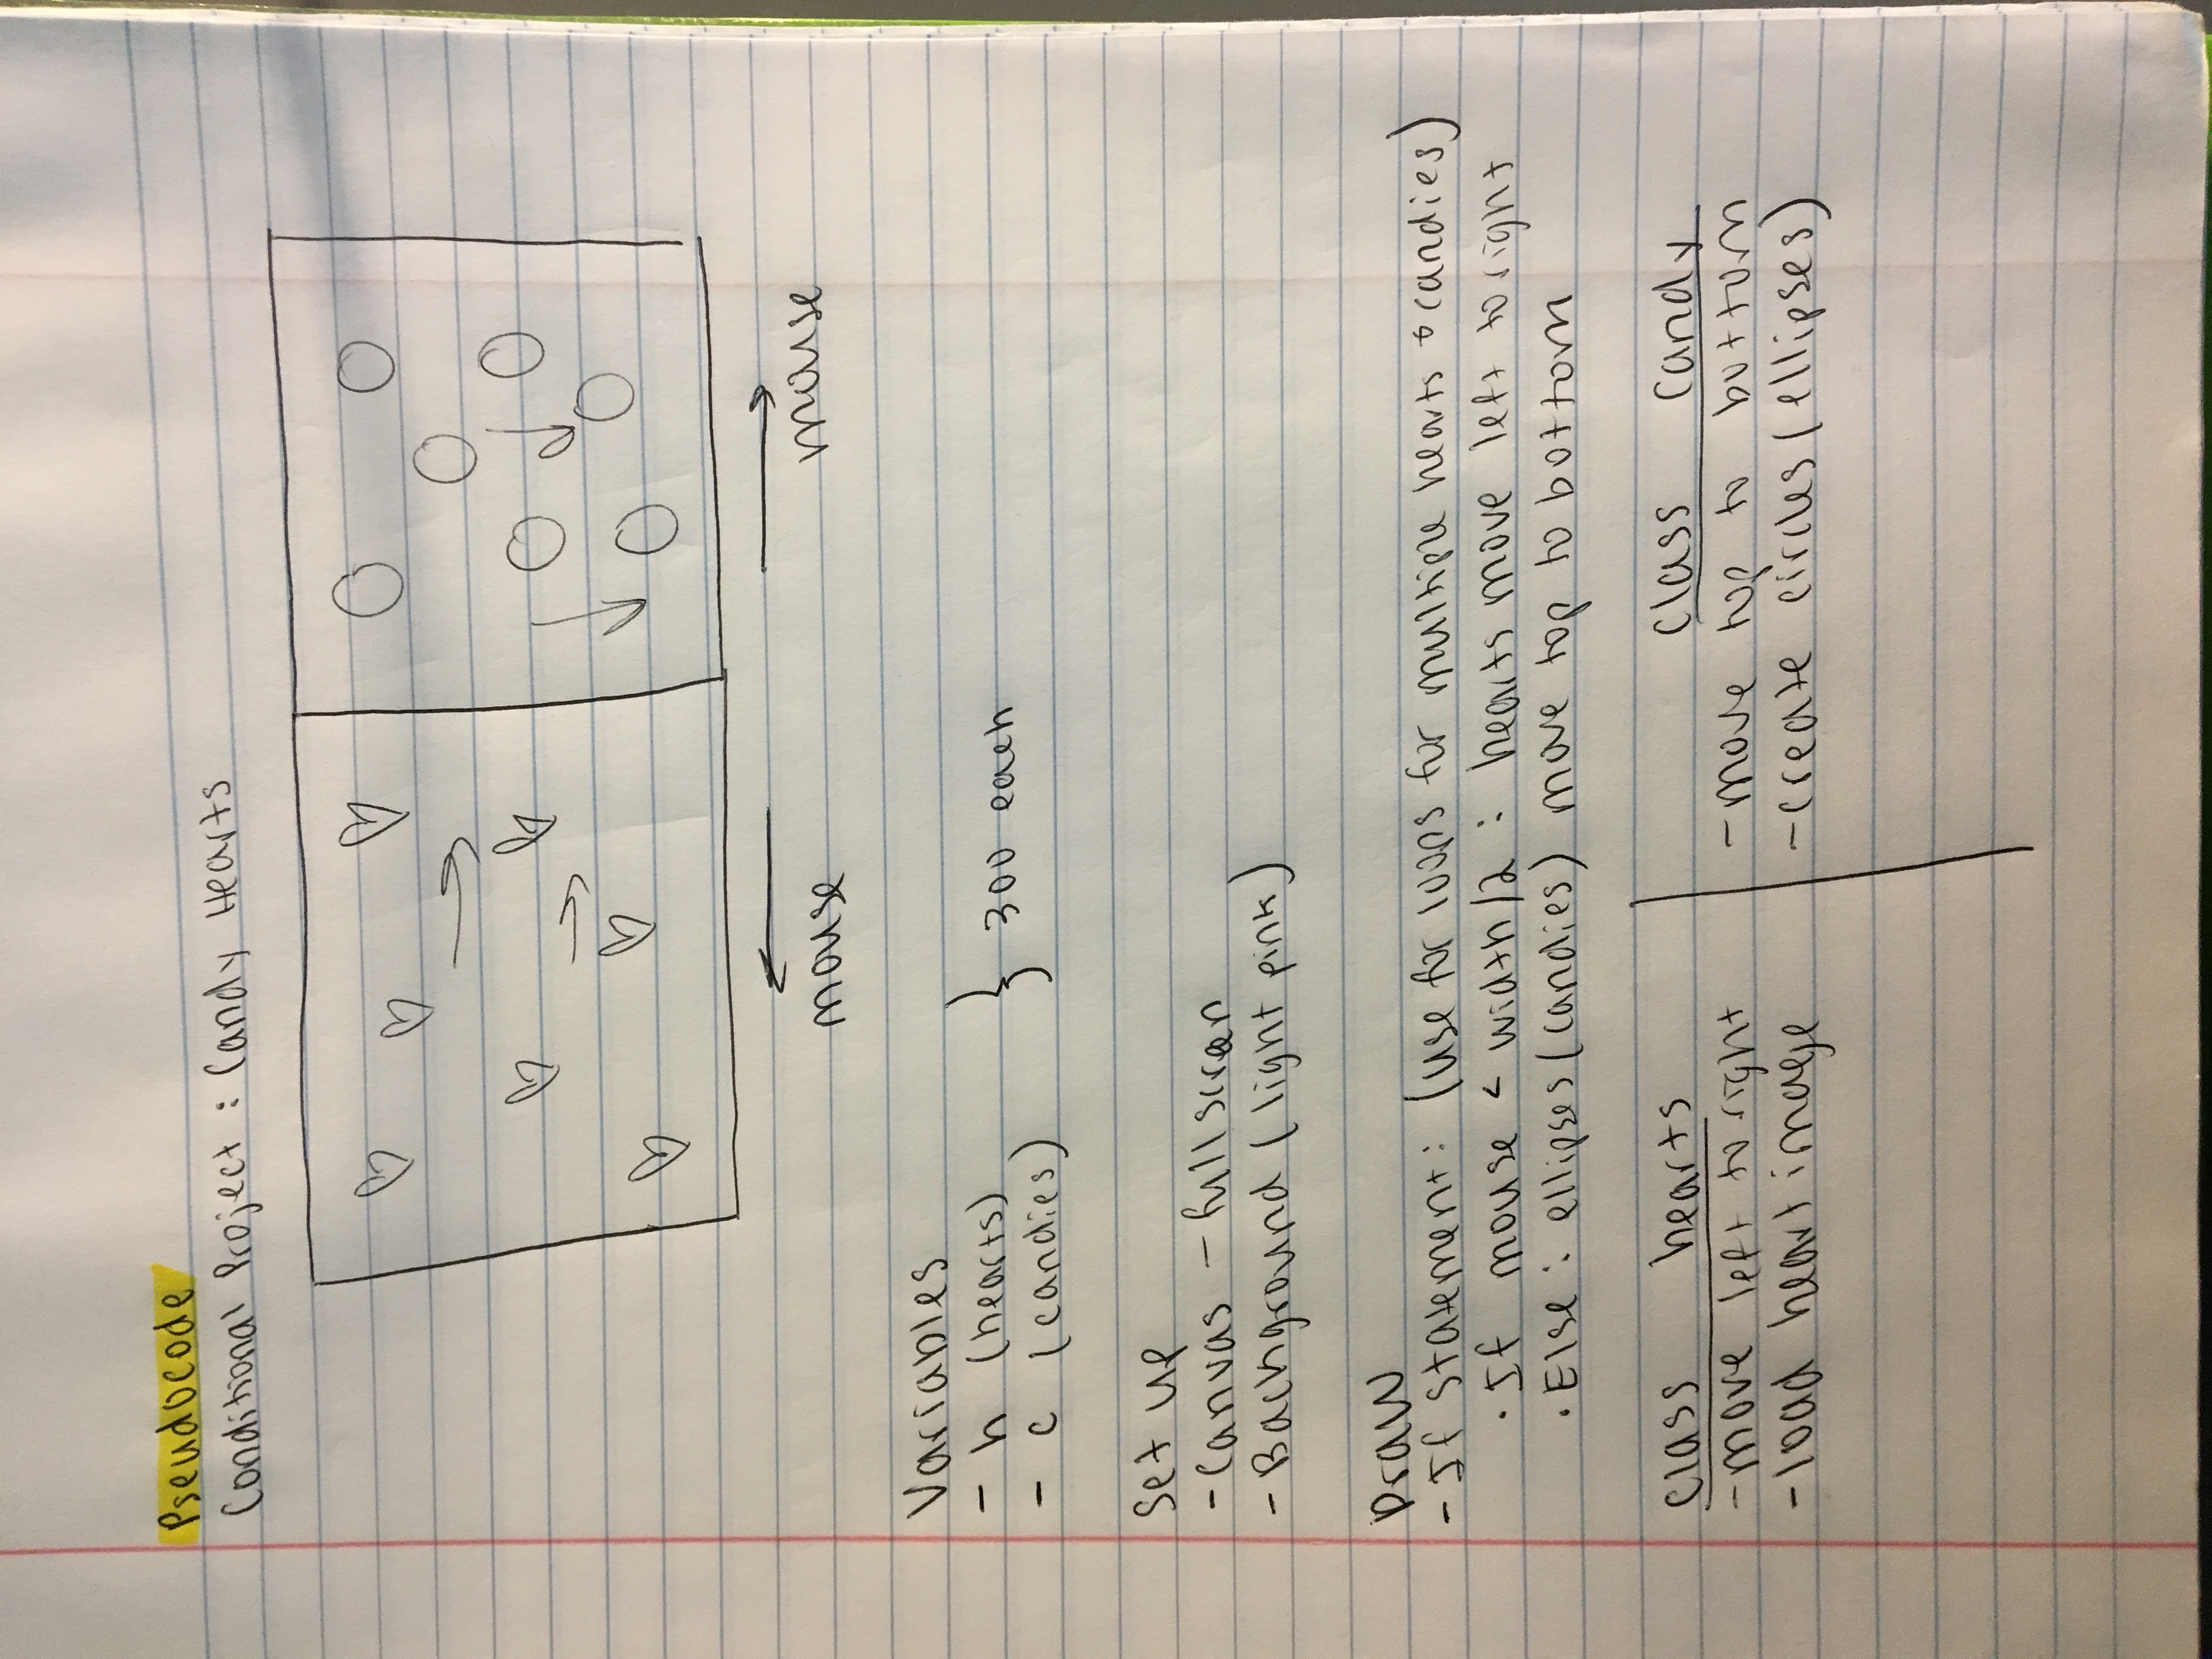 Pseudocode
Conditional Project : Candy Hearts
mouse
mouse
Variables
- h (hearts)
- c (candies)
} 300 each
Set up
- Canvas - fullscreen
- Background (light pink)
Draw
- If statement: (use for loops for multiple hearts + candies)
· If mouse < width/2 : hearts move left to right
· Else : ellipses (candies) move top to bottom
class hearts
- move left to right
- load heart image
class Candy
- move top to bottom
- create circles (ellipses)